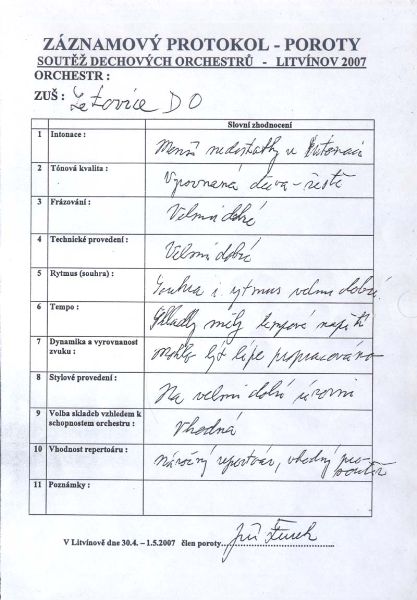 ZÁZNAMOVÝ PROTOKOL - POROTY
SOUTĚŽ DECHOVÝCH ORCHESTRŮ - LITVÍNOV 2007
ORCHESTR :
ZUŠ : Letovice DO
Slovní zhodnocení
1 Intonace : Menší nedostatky v intonaci
2 Tónová kvalita : Vyrovnaná
3 Frázování : Velmi dobré
4 Technické provedení : Velmi dobré
5 Rytmus (souhra) : Souhra i rytmus velmi dobrá.
6 Tempo : Skladby měly tempové napětí
7 Dynamika a vyrovnanost zvuku : mohla být lépe propracována
8 Stylové provedení : Na velmi dobré úrovni
9 Volba skladeb vzhledem k schopnostem orchestru : Vhodná
10 Vhodnost repertoáru : náročný repertoár, vhodný pro soutěž
11 Poznámky :
V Litvínově dne 30.4. – 1.5.2007 člen poroty Jiří